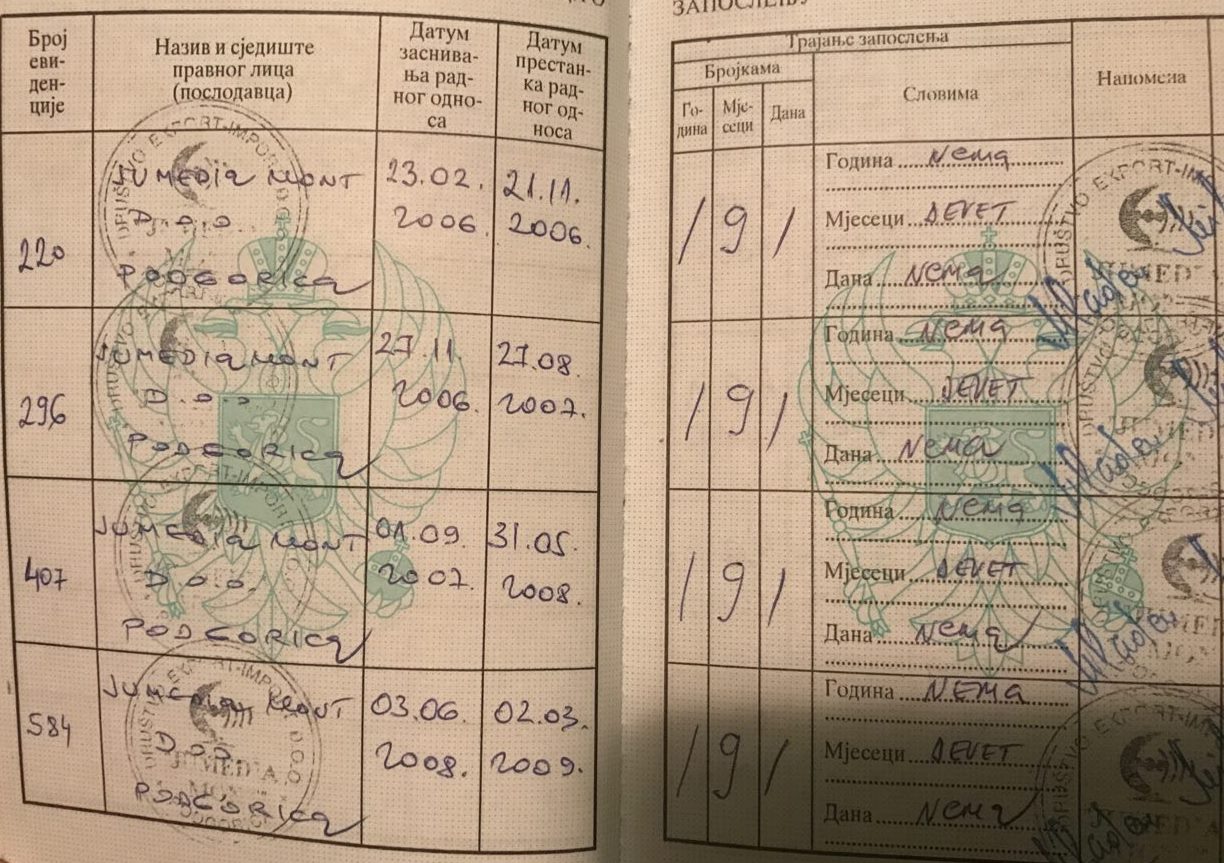 ЗАПОСЛЕЊУ
Број еви-ден-ције
Назив и сједиште
правног лица
(послодавца)
Датум
заснива-
ња рад-
ног одно-
са
Датум
престан-
ка рад-
ног од-
носа
Трајање запослења
Бројкама
Го-
дина
Мје-
сеци
Дана
Словима
Напомена
220
JUMEDIA MONT
D.o.o.
PODGORICA
23.02.
2006.
21.11.
2006.
/ 9 /
Година Nema
Мјесеци DEVET
Дана Nema
296
JUMEDIA MONT
D.o.o
PODGORICA
27.11.
2006.
27.08.
2007.
/ 9 /
Година Nema
Мјесеци DEVET
Дана Nema
407
JUMEDIA MONT
D.o.o.
PODGORICA
01.09.
2007.
31.05.
2008.
/ 9 /
Година Nema
Мјесеци DEVET
Дана Nema
584
JUMEDIA MONT
D.o.o
PODGORICA
03.06.
2008.
02.03.
2009.
/ 9 /
Година NEMA
Мјесеци DEVET
Дана Nema
DRUŠTVO EXPORT-IMPORT D.O.O.
JUMEDIA